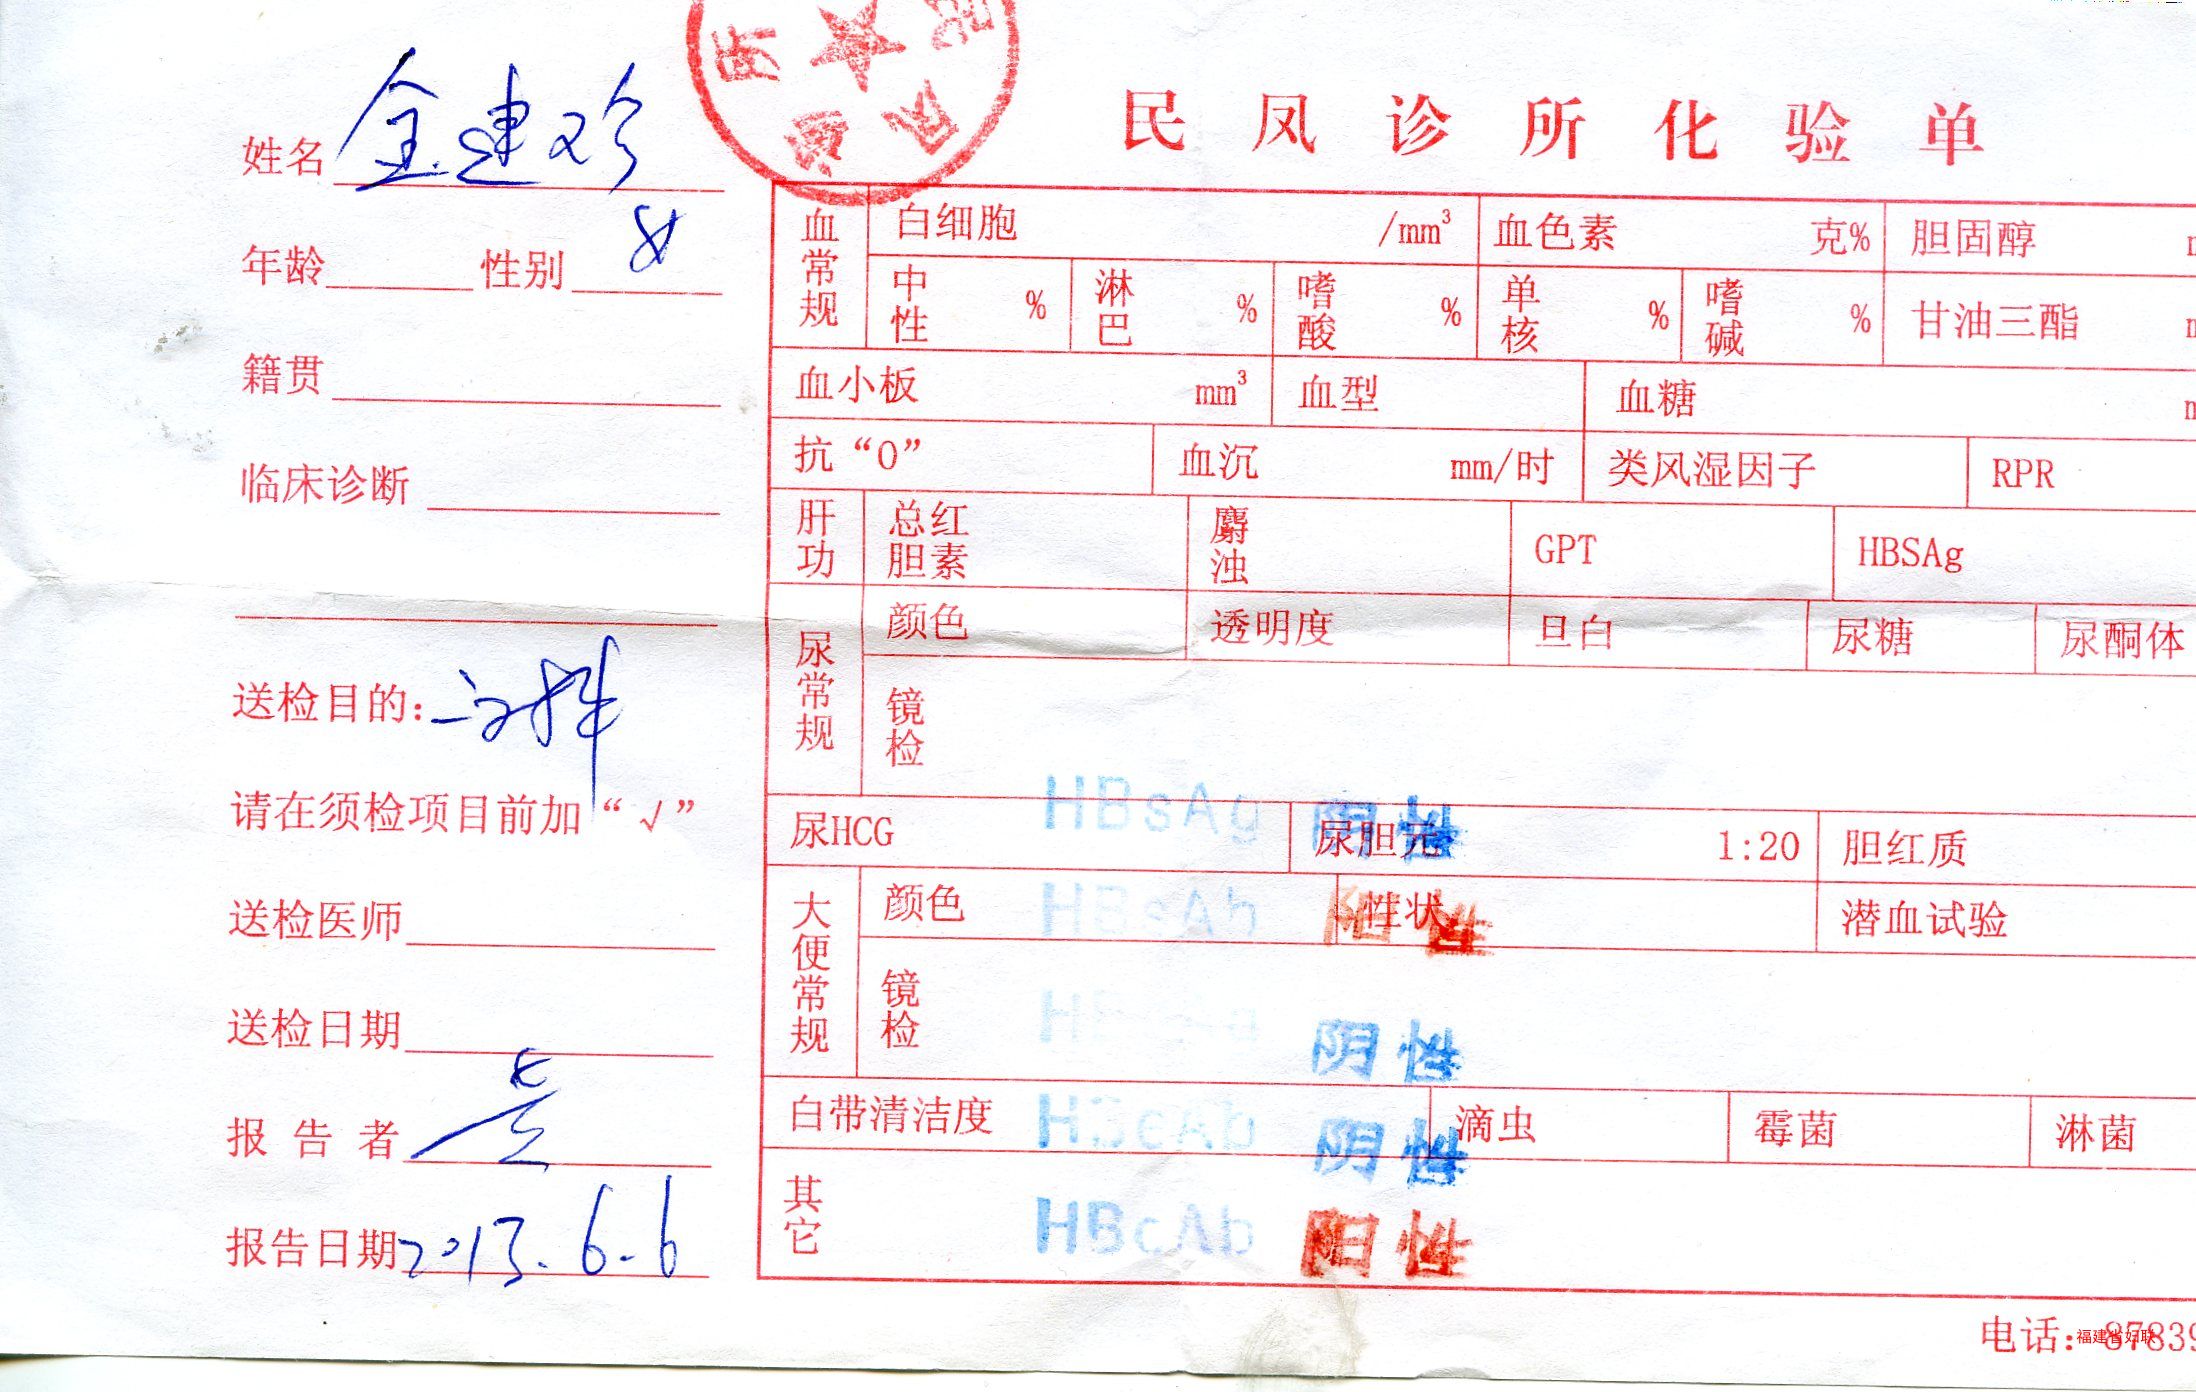 民凤诊所化验单
姓名 金建珍
年龄 性别 女
籍贯
临床诊断
送检目的：
请在须检项目前加“√”
送检医师
送检日期
报告者
报告日期 2013.6.6
血常规 白细胞 /mm³ 血色素 克% 胆固醇
中性 % 淋巴 % 嗜酸 % 单核 % 嗜碱 % 甘油三酯
血小板 mm³ 血型 血糖
抗“O” 血沉 mm/时 类风湿因子 RPR
肝功 总红胆素 麝浊 GPT HBSAg
尿常规 颜色 透明度 旦白 尿糖 尿酮体
镜检
HBsAg 阴性
尿HCG 尿胆元 1:20 胆红质
大便常规 颜色 性状 潜血试验
HBsAb 阳性
镜检
阴性
白带清洁度 滴虫 霉菌 淋菌
HBeAb 阴性
其它
HBcAb 阳性
电话：8783
福建省妇联